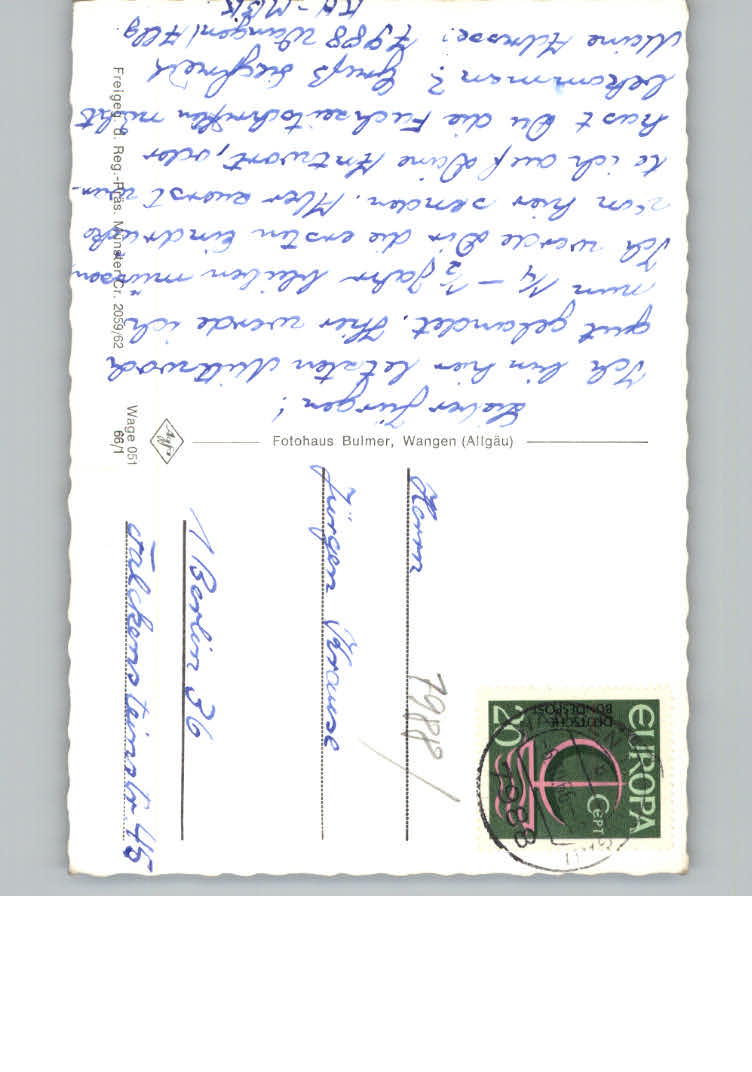 Lieber Jürgen!
Ich bin hier letzten Mittwoch
gut gelandet. Hier werde ich
nun 1/4 - 1/2 Jahr bleiben müssen
Ich werde Dir die ersten Eindrücke
von hier senden. Aber zuerst war-
te ich auf Deine Antwort, oder
hast Du die Fachzeitschriften nicht
bekommen? Gruß Siegfried
Meine Adresse: 7988 Wangen/Allg
Fotohaus Bulmer, Wangen (Allgäu)
Agfa
Wage 051
66/1
Freigeg. d. Reg.-Präs. Münster Cr. 2059/62
Herrn
Jürgen Krause
1 Berlin 36
Falckensteinstr. 45
7988/
EUROPA
CEPT
20
DEUTSCHE
BUNDESPOST
7988